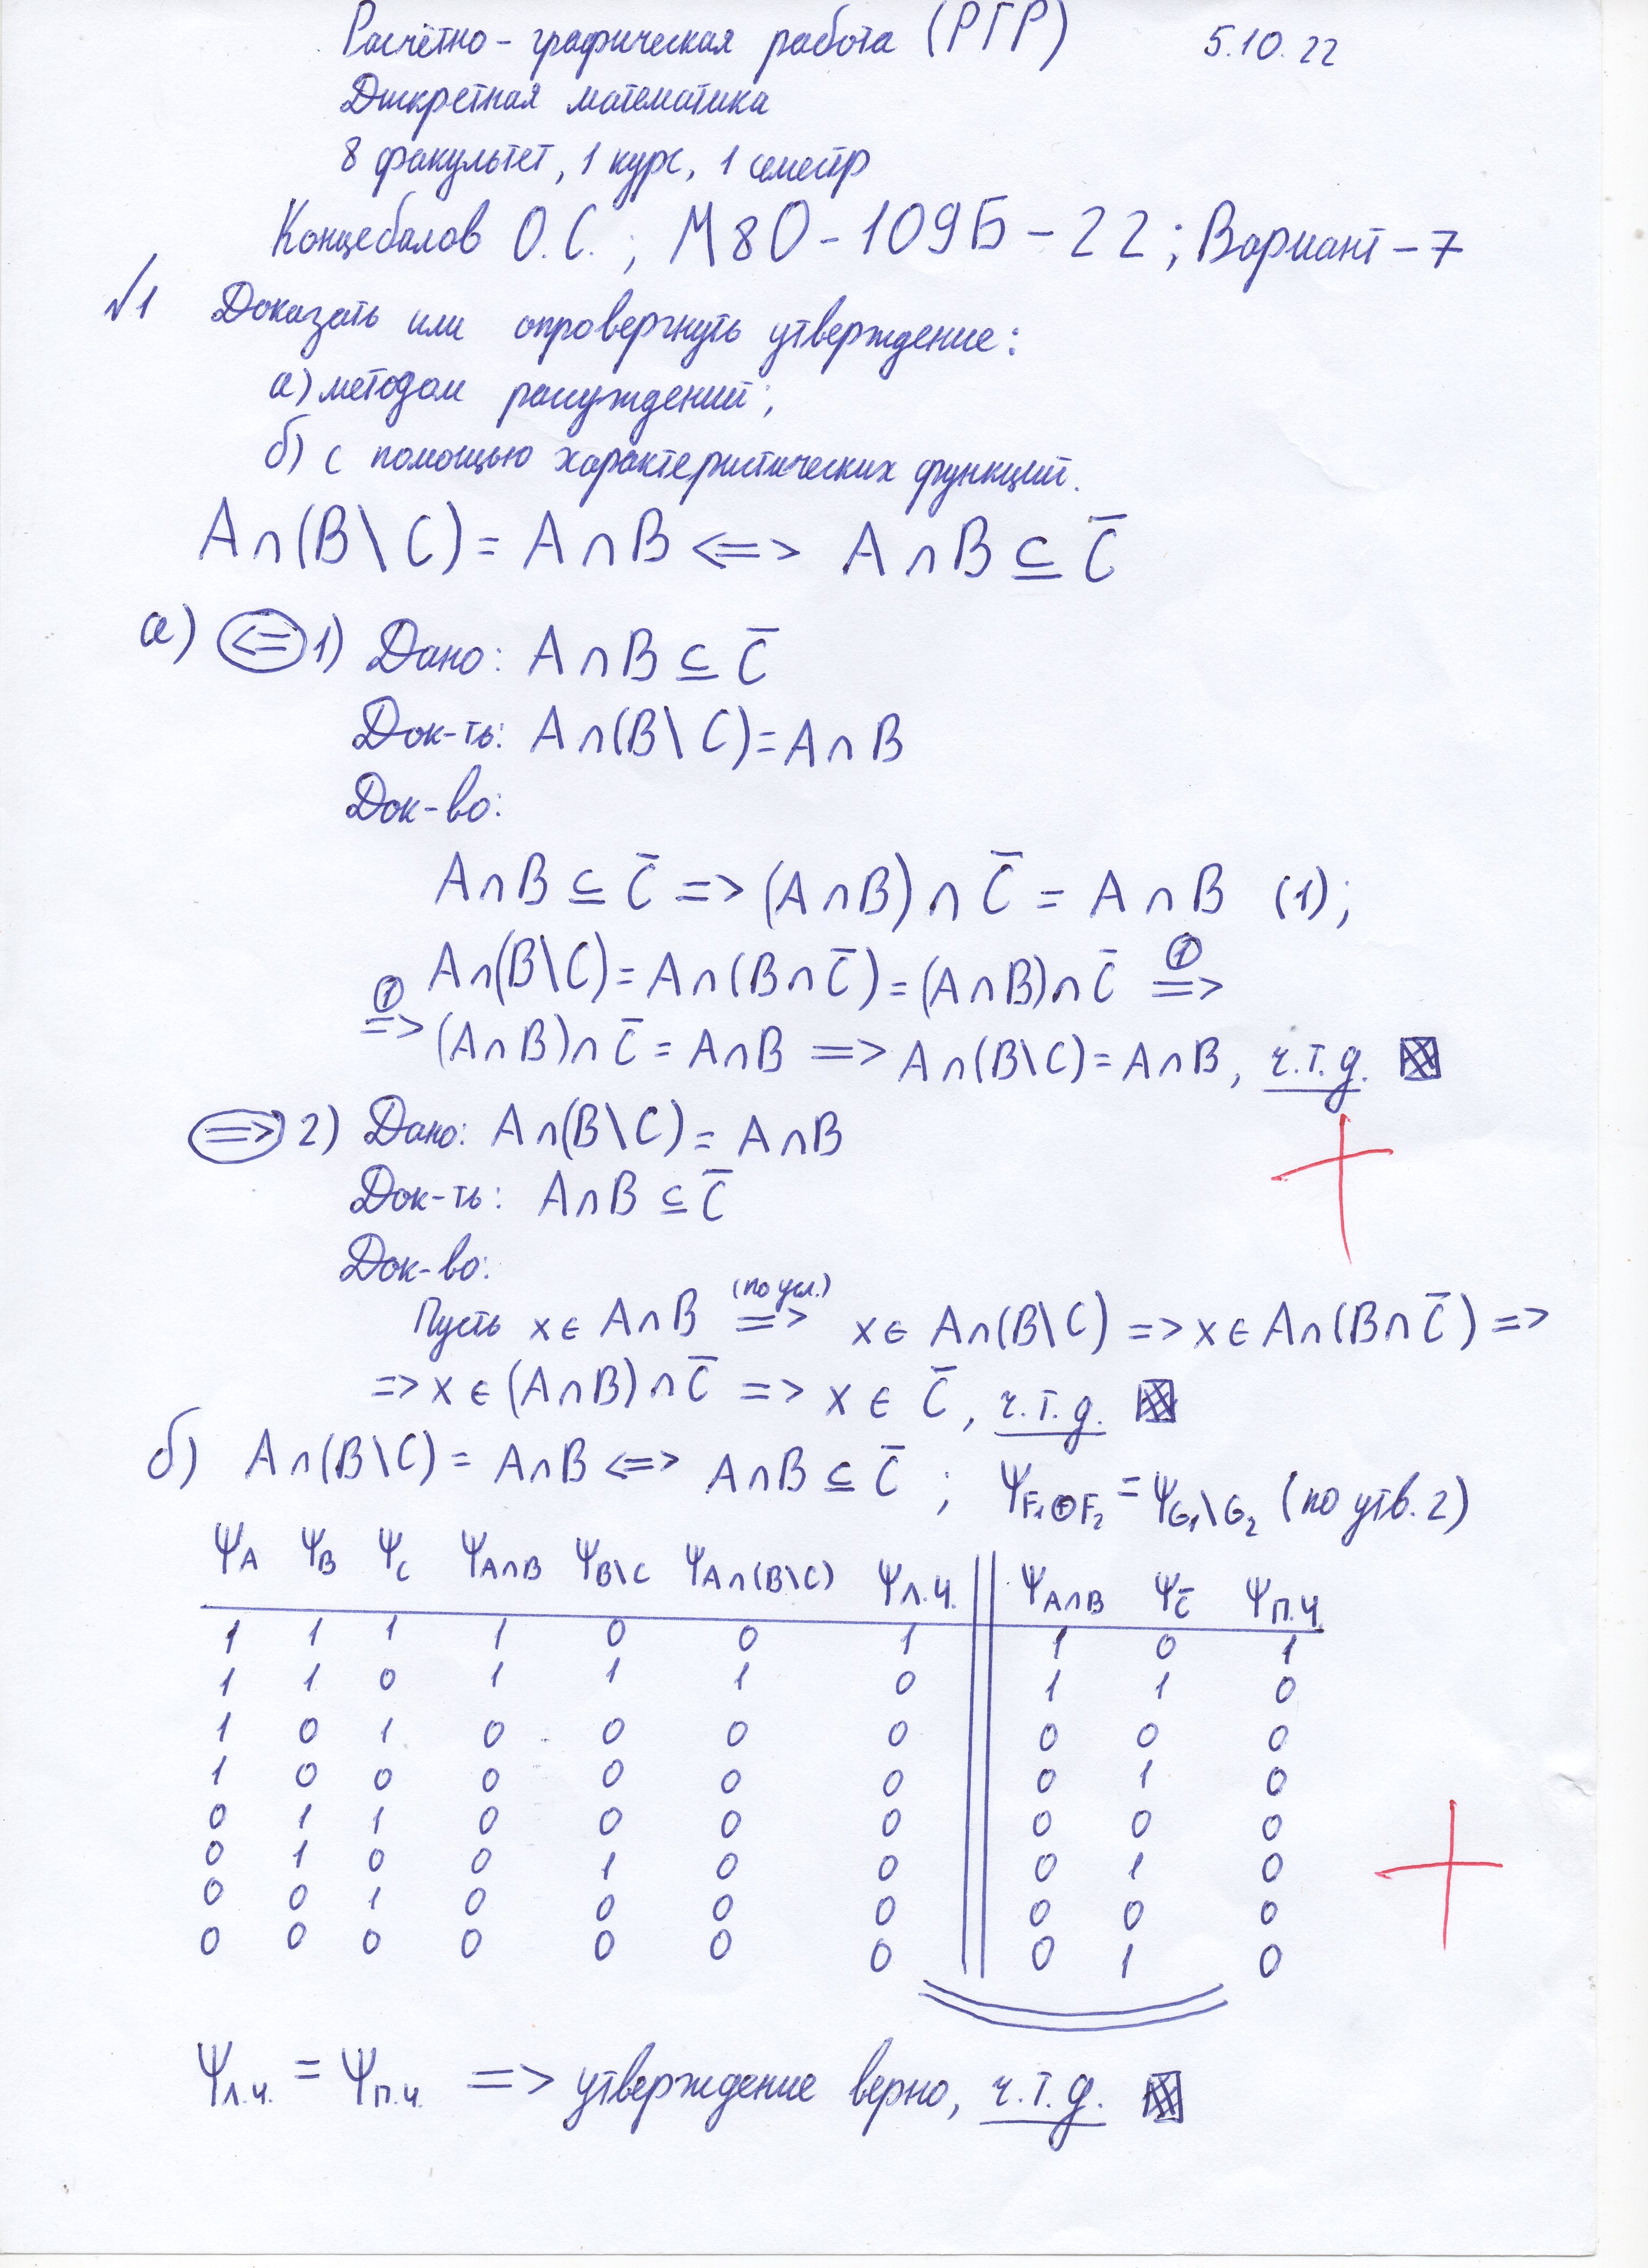 Расчётно-графическая работа (РГР) 5.10.22
Дискретная математика
8 факультет, 1 курс, 1 семестр
Концебалов О.С.; М8О-109Б-22; Вариант-7
№1 Доказать или опровергнуть утверждение:
а) методом рассуждений;
б) с помощью характеристических функций.
A∩(B\C)=A∩B <=> A∩B⊆C̅
а) <= 1) Дано: A∩B⊆C̅
Док-ть: A∩(B\C)=A∩B
Док-во:
A∩B⊆C̅ => (A∩B)∩C̅ = A∩B (1);
A∩(B\C)=A∩(B∩C̅)=(A∩B)∩C̅ =>①
①=> (A∩B)∩C̅ = A∩B => A∩(B\C)=A∩B, ч.т.д.
=> 2) Дано: A∩(B\C)=A∩B
Док-ть: A∩B⊆C̅
Док-во:
Пусть x∈A∩B (по усл.) => x∈A∩(B\C) => x∈A∩(B∩C̅) =>
=> x∈(A∩B)∩C̅ => x∈C̅, ч.т.д.
б) A∩(B\C)=A∩B <=> A∩B⊆C̅; Ψ_F₁⊕F₂ = Ψ_G₁\G₂ (по утв. 2)
Ψ_A Ψ_B Ψ_C Ψ_A∩B Ψ_B\C Ψ_A∩(B\C) Ψ_Л.Ч. Ψ_A∩B Ψ_C̅ Ψ_П.Ч.
1 1 1 1 0 0 1 1 0 1
1 1 0 1 1 1 0 1 1 0
1 0 1 0 0 0 0 0 0 0
1 0 0 0 0 0 0 0 1 0
0 1 1 0 0 0 0 0 0 0
0 1 0 0 1 0 0 0 1 0
0 0 1 0 0 0 0 0 0 0
0 0 0 0 0 0 0 0 1 0
Ψ_Л.Ч. = Ψ_П.Ч. => утверждение верно, ч.т.д.